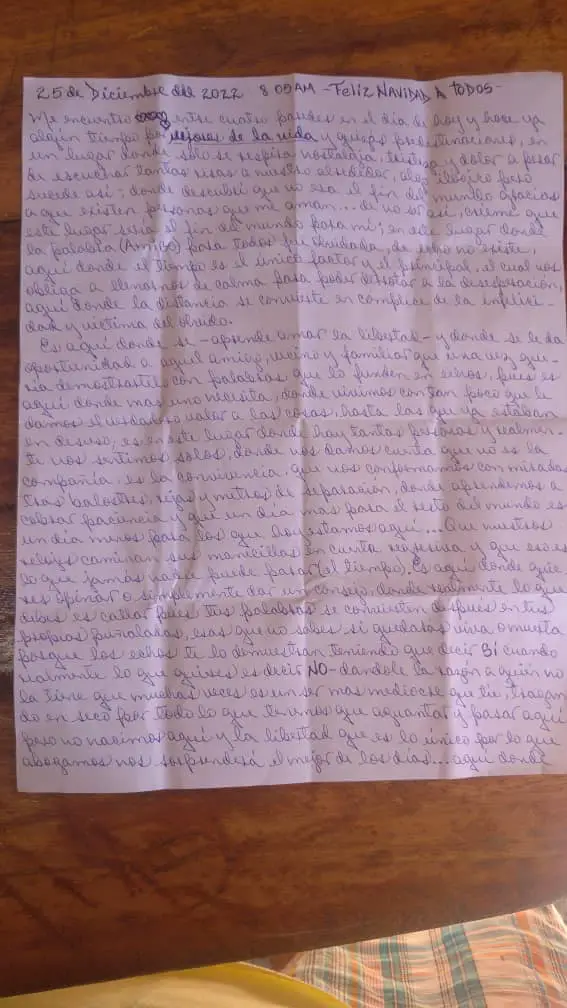 25 de Diciembre del 2022 8 05 AM - FELIZ NAVIDAD A TODOS -
Me encuentro entre cuatro paredes en el dia de hoy y hace ya
algún tiempo por de la vida y quizas predestinaciones, en
un lugar donde solo se respira nostalgia, tristeza y dolor a pesar
de escuchar tantas risas a nuestro alrededor, algo ilogico pero
sucede asi; donde descubri que no era el fin del mundo gracias
a que existen personas que me aman... de no ser asi, creeme que
este lugar seria el fin del mundo para mi; en este lugar donde
la palabra (Amigo) para todos fue olvidada, de echo no existe,
aqui donde el tiempo es el único factor y el principal, el cual nos
obliga a llenarnos de calma para poder derrotar a la desesperación,
aqui donde la distancia se convierte en complice de la infelici-
dad y victima del olvido.
Es aqui donde se - aprende amar la libertad - y donde se le da
oportunidad a aquel amigo, vecino y familiar que una vez que-
ria demostrarte con palabras que lo funden en echos, pues es
aqui donde mas uno necesita, donde vivimos con tan poco que le
damos el verdadero valor a las cosas, hasta las que ya estaban
en desuso, es en este lugar donde hay tantas personas y realmen-
te nos sentimos solos, donde nos damos cuenta que no es la
compañia, es la convivencia, que nos conformamos con miradas
tras balostres, rejas y metros de separación, donde aprendemos a
cobrar paciencia y que un dia mas para el resto del mundo es
un dia menos para los que hoy estamos aqui... Que nuestros
relojes caminan sus manecillas en cuenta regresiva y que eso es
lo que jamás nadie puede parar (el tiempo). Es aqui donde quie-
res opinar o simplemente dar un consejo, donde realmente lo que
debes es callar pues tus palabras se convierten despues en tus
propias puñaladas, esas que no sabes si quedaras viva o muerta
porque los echos te lo demuestran teniendo que decir SÍ cuando
realmente lo que quises es decir NO - dandole la razón a quien no
la tiene que muchas veces es un ser mas mediocre que tu, tragan-
do en seco por todo lo que tenemos que aguantar y pasar aqui
pero no nacimos aqui y la libertad que es lo único por lo que
abogamos nos sorprenderá el mejor de los dias... aqui donde